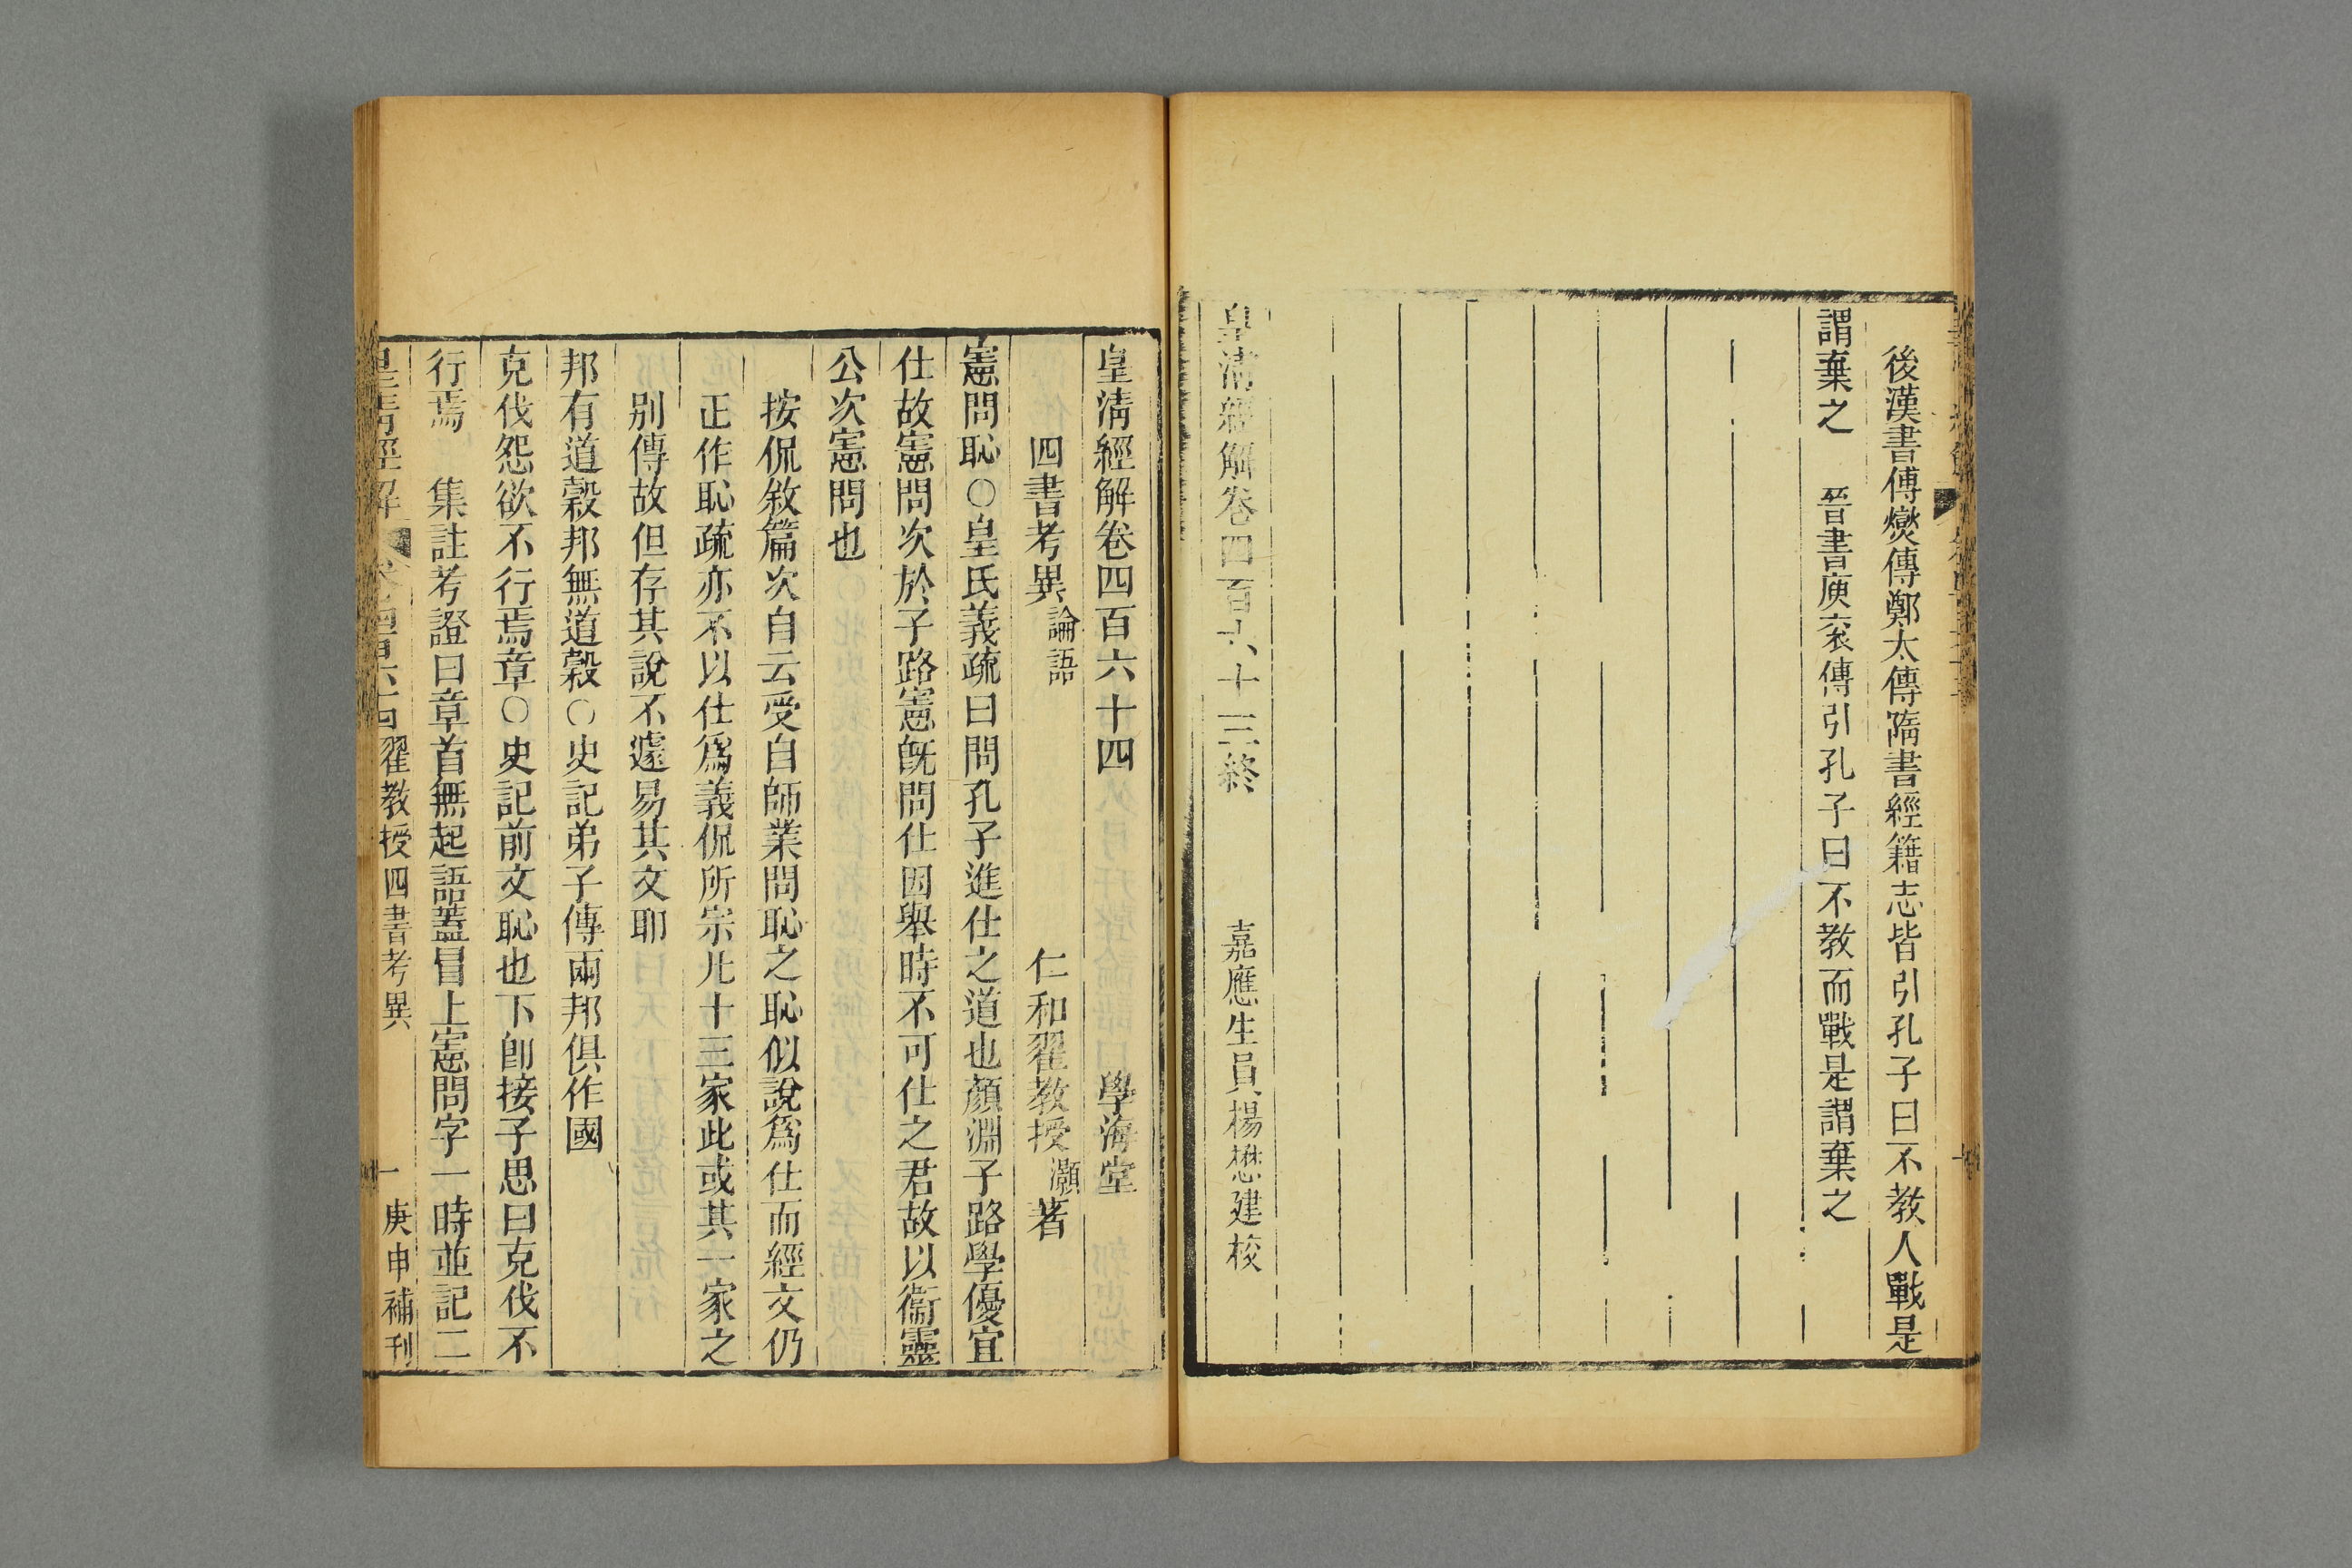 後漢書傅燮傳鄭太傳隋書經籍志皆引孔子曰不教人戰是
謂棄之　晉書庾袞傳引孔子曰不教而戰是謂棄之
皇清經解卷四百六十三終　嘉應生員楊懋建校
皇清經解卷四百六十四　學海堂
四書考異論語　仁和翟教授灝著
憲問恥○皇氏義疏曰問孔子進仕之道也顏淵子路學優宜
仕故憲問次於子路憲旣問仕因舉時不可仕之君故以衞靈
公次憲問也
按侃敘篇次自云受自師業問恥之恥似說爲仕而經文仍
正作恥疏亦不以仕爲義侃所宗凡十三家此或其一家之
別傳故但存其說不遽易其文耶
邦有道穀邦無道穀○史記弟子傳兩邦俱作國
克伐怨欲不行焉章○史記前文恥也下卽接子思曰克伐不
行焉　集註考證曰章首無起語蓋冒上憲問字一時並記二
皇清經解　卷四百六十四翟教授四書考異　一　庚申補刊